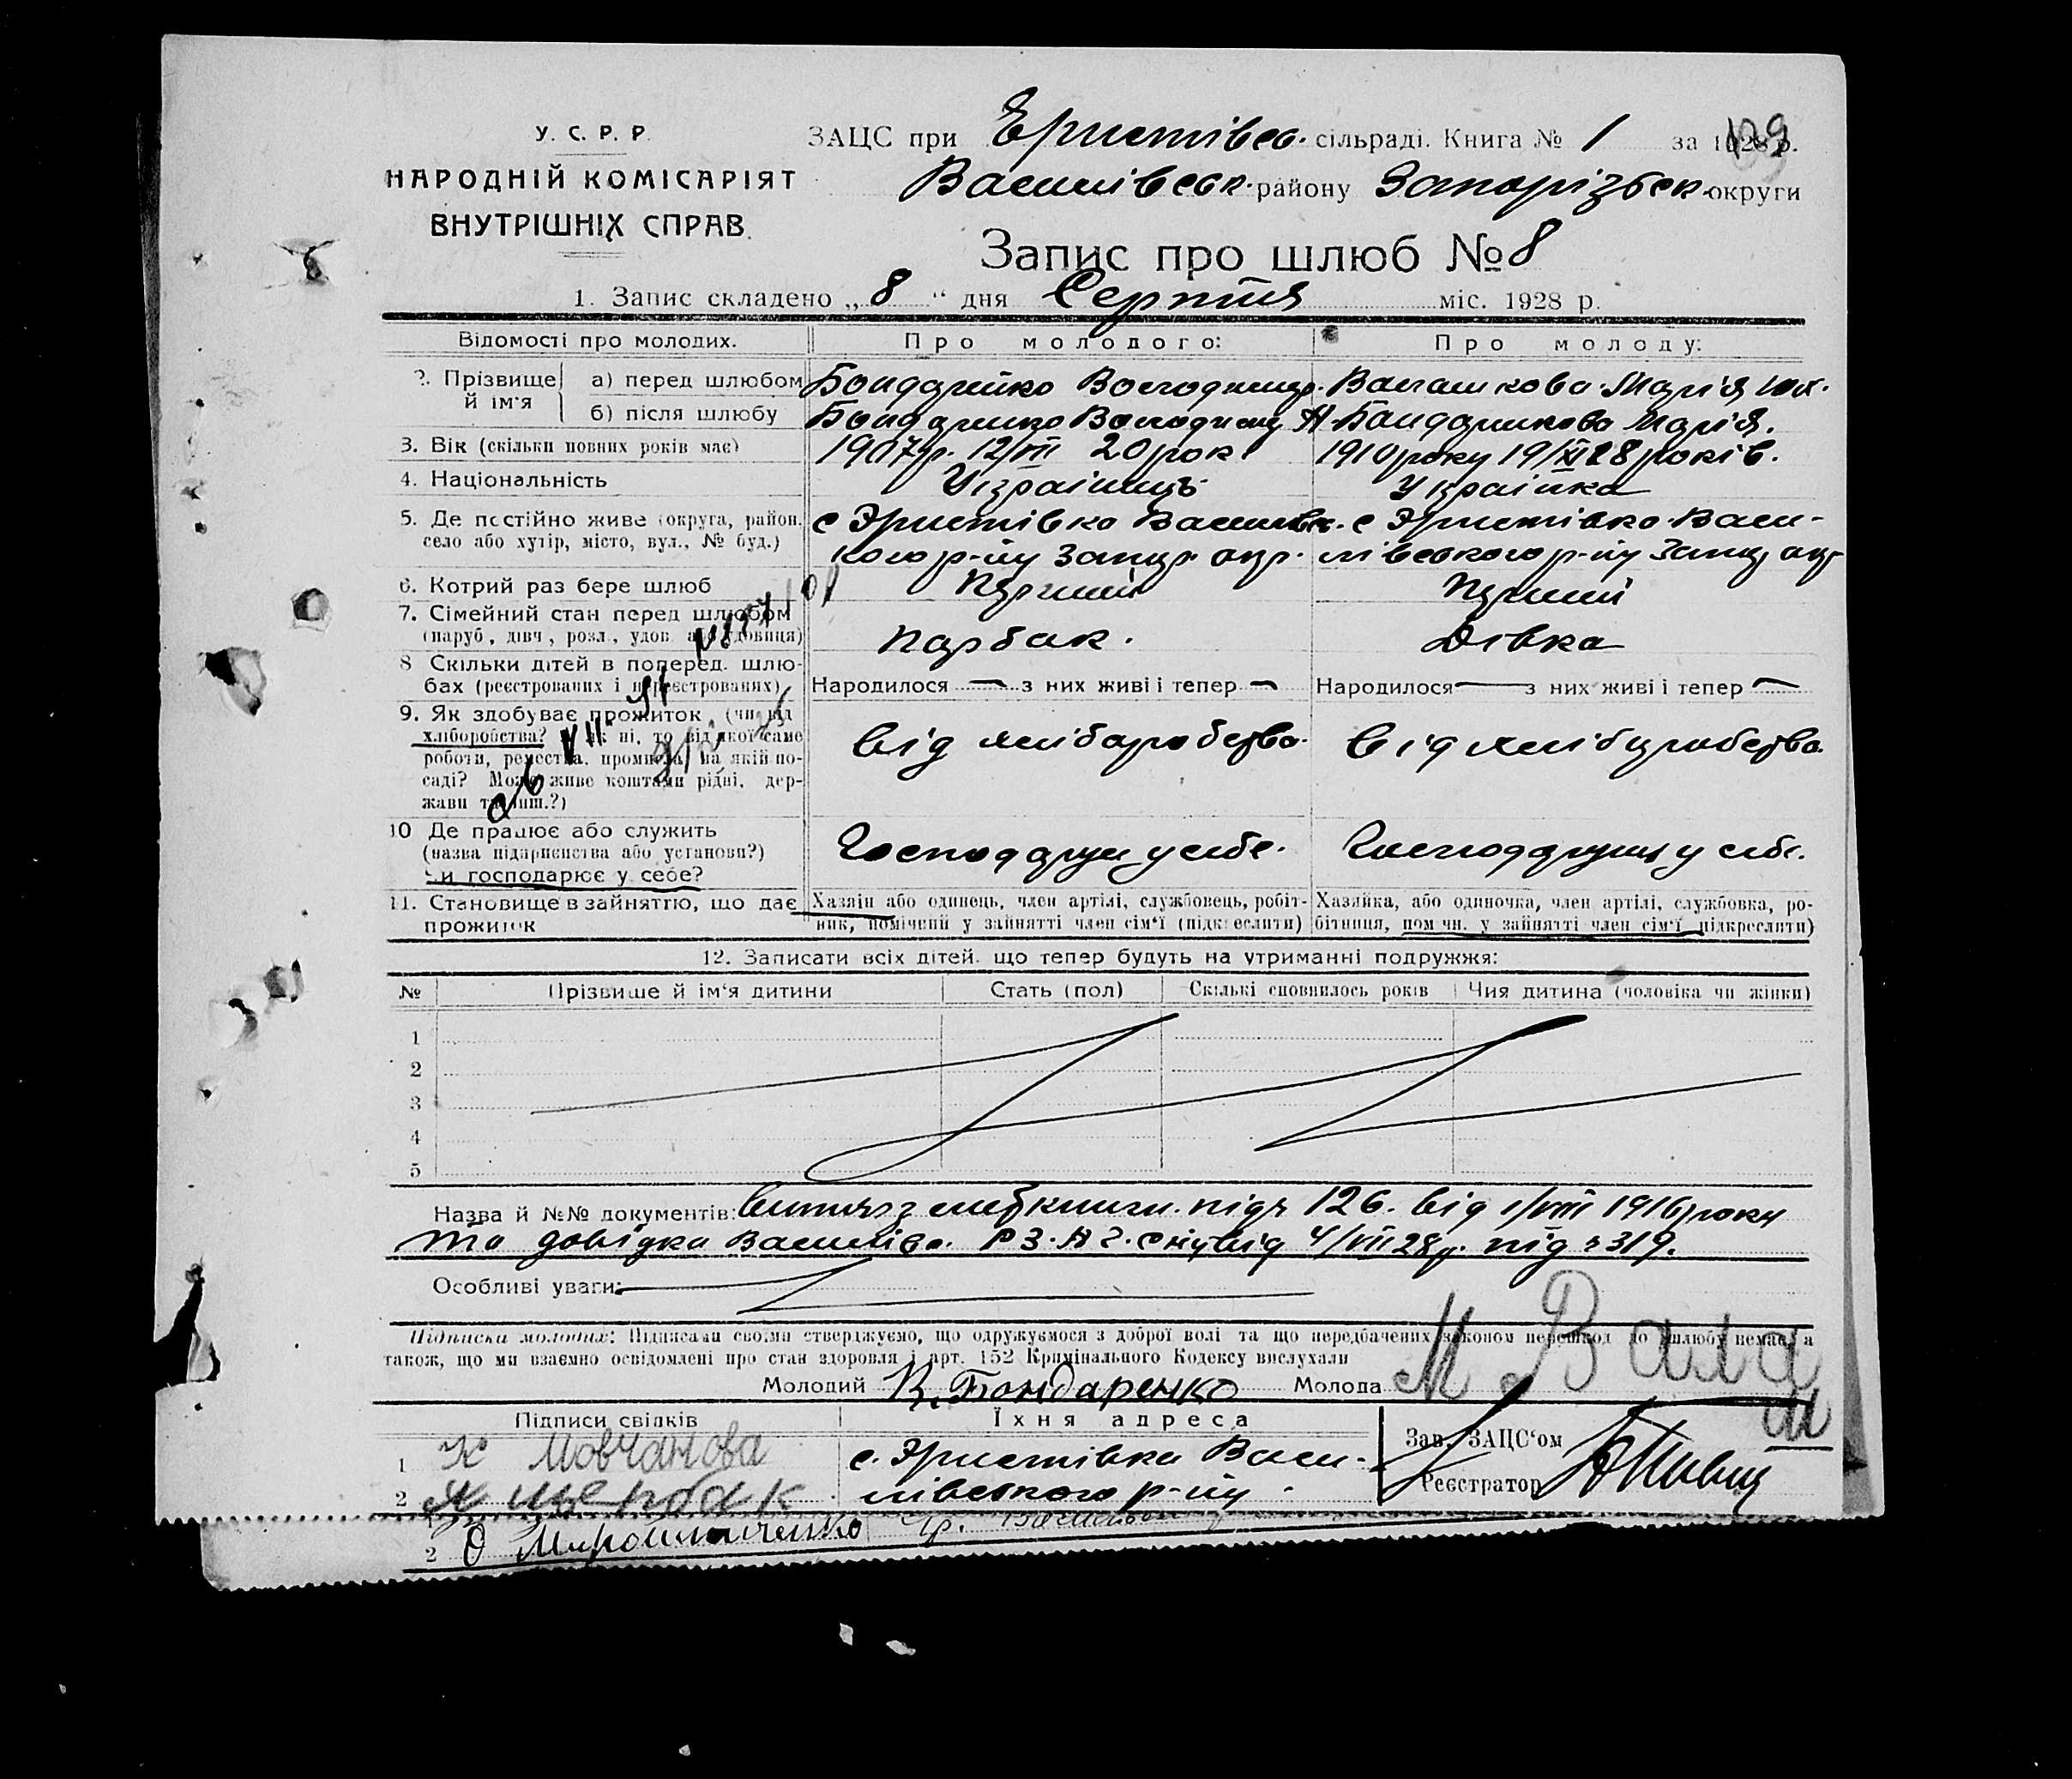 У. С. Р. Р.
НАРОДНІЙ КОМІСАРІЯТ
ВНУТРІШНІХ СПРАВ.
ЗАЦС при Еристівсь. сільраді. Книга № 1 за 1928 р.
Василівськ. району Запорізськ. округи
Запис про шлюб № 8
1. Запис складено „ 8 “ дня Серпня міс. 1928 р.
Відомості про молодих. Про молодого: Про молоду:
2. Прізвище й ім'я
а) перед шлюбом Бондаренко Володимир. Валашкова Марія
б) після шлюбу Бондаренко Володимир Бондаренкова Марія.
3. Вік (скільки повних років має) 1907 р. 12/VII 20 рок 1910 року 19/XI 18 років.
4. Національність Українець Українка
5. Де постійно живе (округа, район, село або хутір, місто, вул., № буд.)
с Эристівко Василівс- кого р-ну Запор. окр.
с Эристівко Васи- лівського р-ну Запор окр
6. Котрий раз бере шлюб Перший Перший
7. Сімейний стан перед шлюбом (паруб., дівч., розл., удов. або удовиця) Парбак. Дівка
8 Скільки дітей в поперед. шлю- бах (реєстрованих і нереєстрованих)
Народилося — з них живі і тепер — Народилося — з них живі і тепер —
9. Як здобуває прожиток (чи від хліборобства? Як ні, то від якої саме роботи, ремества, промисла, на якій по- саді? Може живе коштами рідні, дер- жави та инш.?)
від хліборобство від хліборобство
10 Де працює або служить (назва підприємства або установи?) Чи господарює у себе?
Господарує у себе. Господарює у себе.
11. Становище в зайняттю, що дає прожиток
Хазяїн або одинець, член артілі, службовець, робіт- ник, помічний у зайнятті член сім'ї (підкреслити)
Хазяйка, або одиночка, член артілі, службовка, ро- бітниця, помічн. у зайнятті член сім'ї підкреслити)
12. Записати всіх дітей, що тепер будуть на утриманні подружжя:
№ Прізвище й ім'я дитини Стать (пол) Скількі сповнилось років Чия дитина (чоловіка чи жінки)
1
2
3
4
5
Назва й №№ документів: Витяг з меткниги. під ч 126. від 1/VIII 1916 року
та довідка Василівс. РЗАГС від 4/VII 28 р. під ч 319.
Особливі уваги:
Підписи молодих: Підписами своїми стверджуємо, що одружуємося з доброї волі та що передбачених законом перешкод до шлюбу немає, а
також, що ми взаємно освідомлені про стан здоровля і арт. 152 Кримінального Кодексу вислухали
Молодий В. Бондаренко Молода М. Вала ш
Підписи свідків Їхня адреса
1 К Мовчанова с. Эристівка Васи-
2 Я Щербак лівського р-ну.
Зав. ЗАЦС'ом
Реєстратор
2 О Мирошниченко